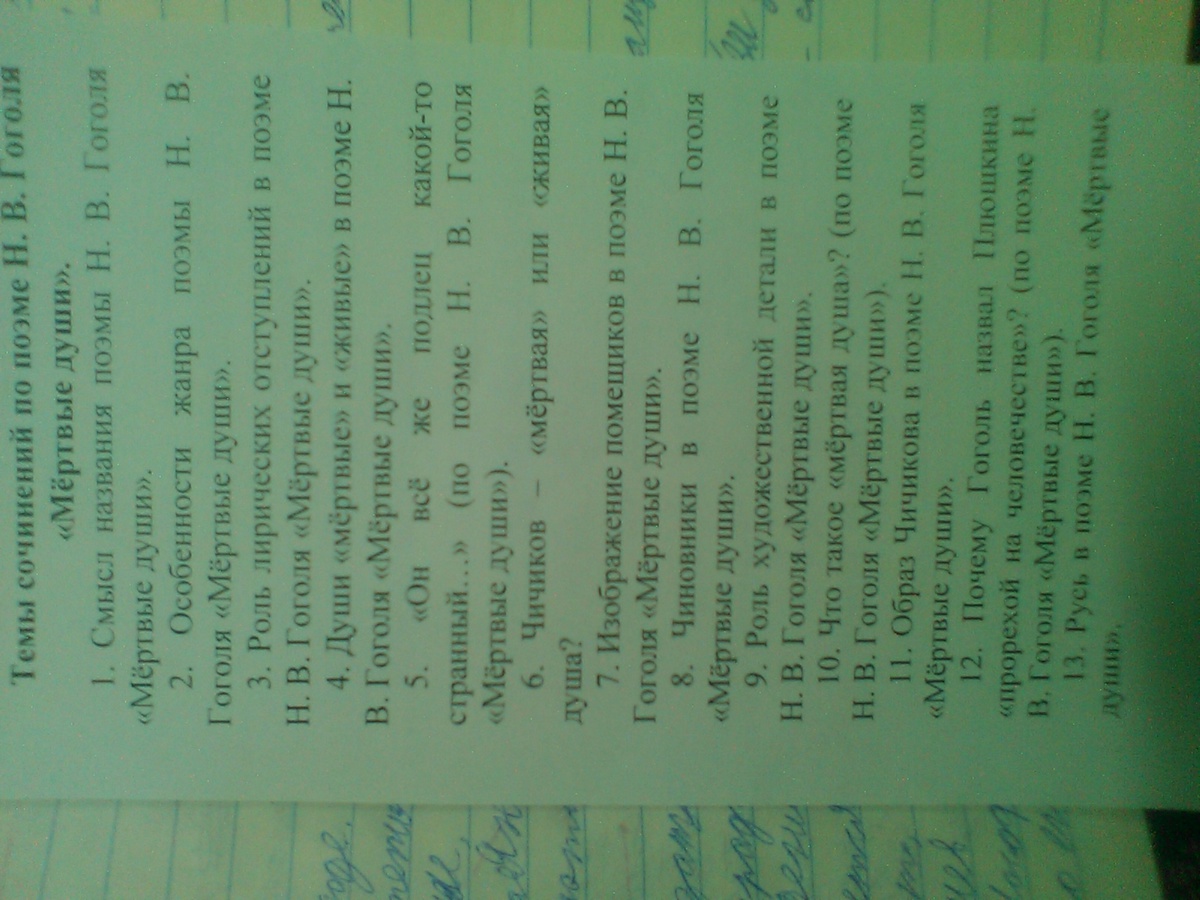 Темы сочинений по поэме Н. В. Гоголя
«Мёртвые души».
1. Смысл названия поэмы Н. В. Гоголя
«Мёртвые души».
2. Особенности жанра поэмы Н. В.
Гоголя «Мёртвые души».
3. Роль лирических отступлений в поэме
Н. В. Гоголя «Мёртвые души».
4. Души «мёртвые» и «живые» в поэме Н.
В. Гоголя «Мёртвые души».
5. «Он всё же подлец какой-то
странный…» (по поэме Н. В. Гоголя
«Мёртвые души»).
6. Чичиков – «мёртвая» или «живая»
душа?
7. Изображение помещиков в поэме Н. В.
Гоголя «Мёртвые души».
8. Чиновники в поэме Н. В. Гоголя
«Мёртвые души».
9. Роль художественной детали в поэме
Н. В. Гоголя «Мёртвые души».
10. Что такое «мёртвая душа»? (по поэме
Н. В. Гоголя «Мёртвые души»).
11. Образ Чичикова в поэме Н. В. Гоголя
«Мёртвые души».
12. Почему Гоголь назвал Плюшкина
«прорехой на человечестве»? (по поэме Н.
В. Гоголя «Мёртвые души»).
13. Русь в поэме Н. В. Гоголя «Мёртвые
души».